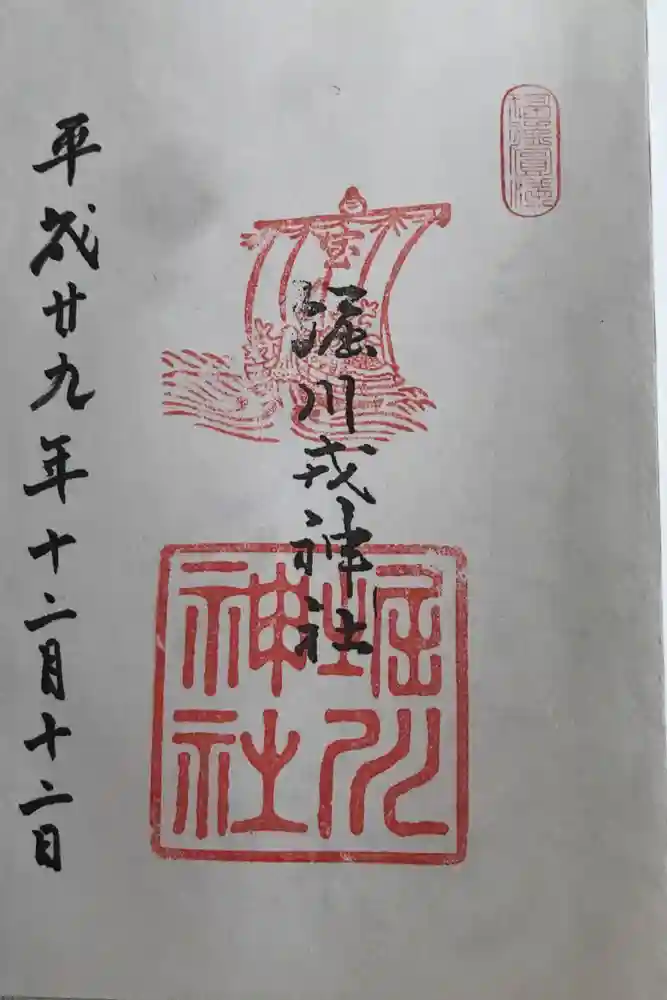 宝
堀川戎神社
堀川
神社
平成廿九年十二月十二日